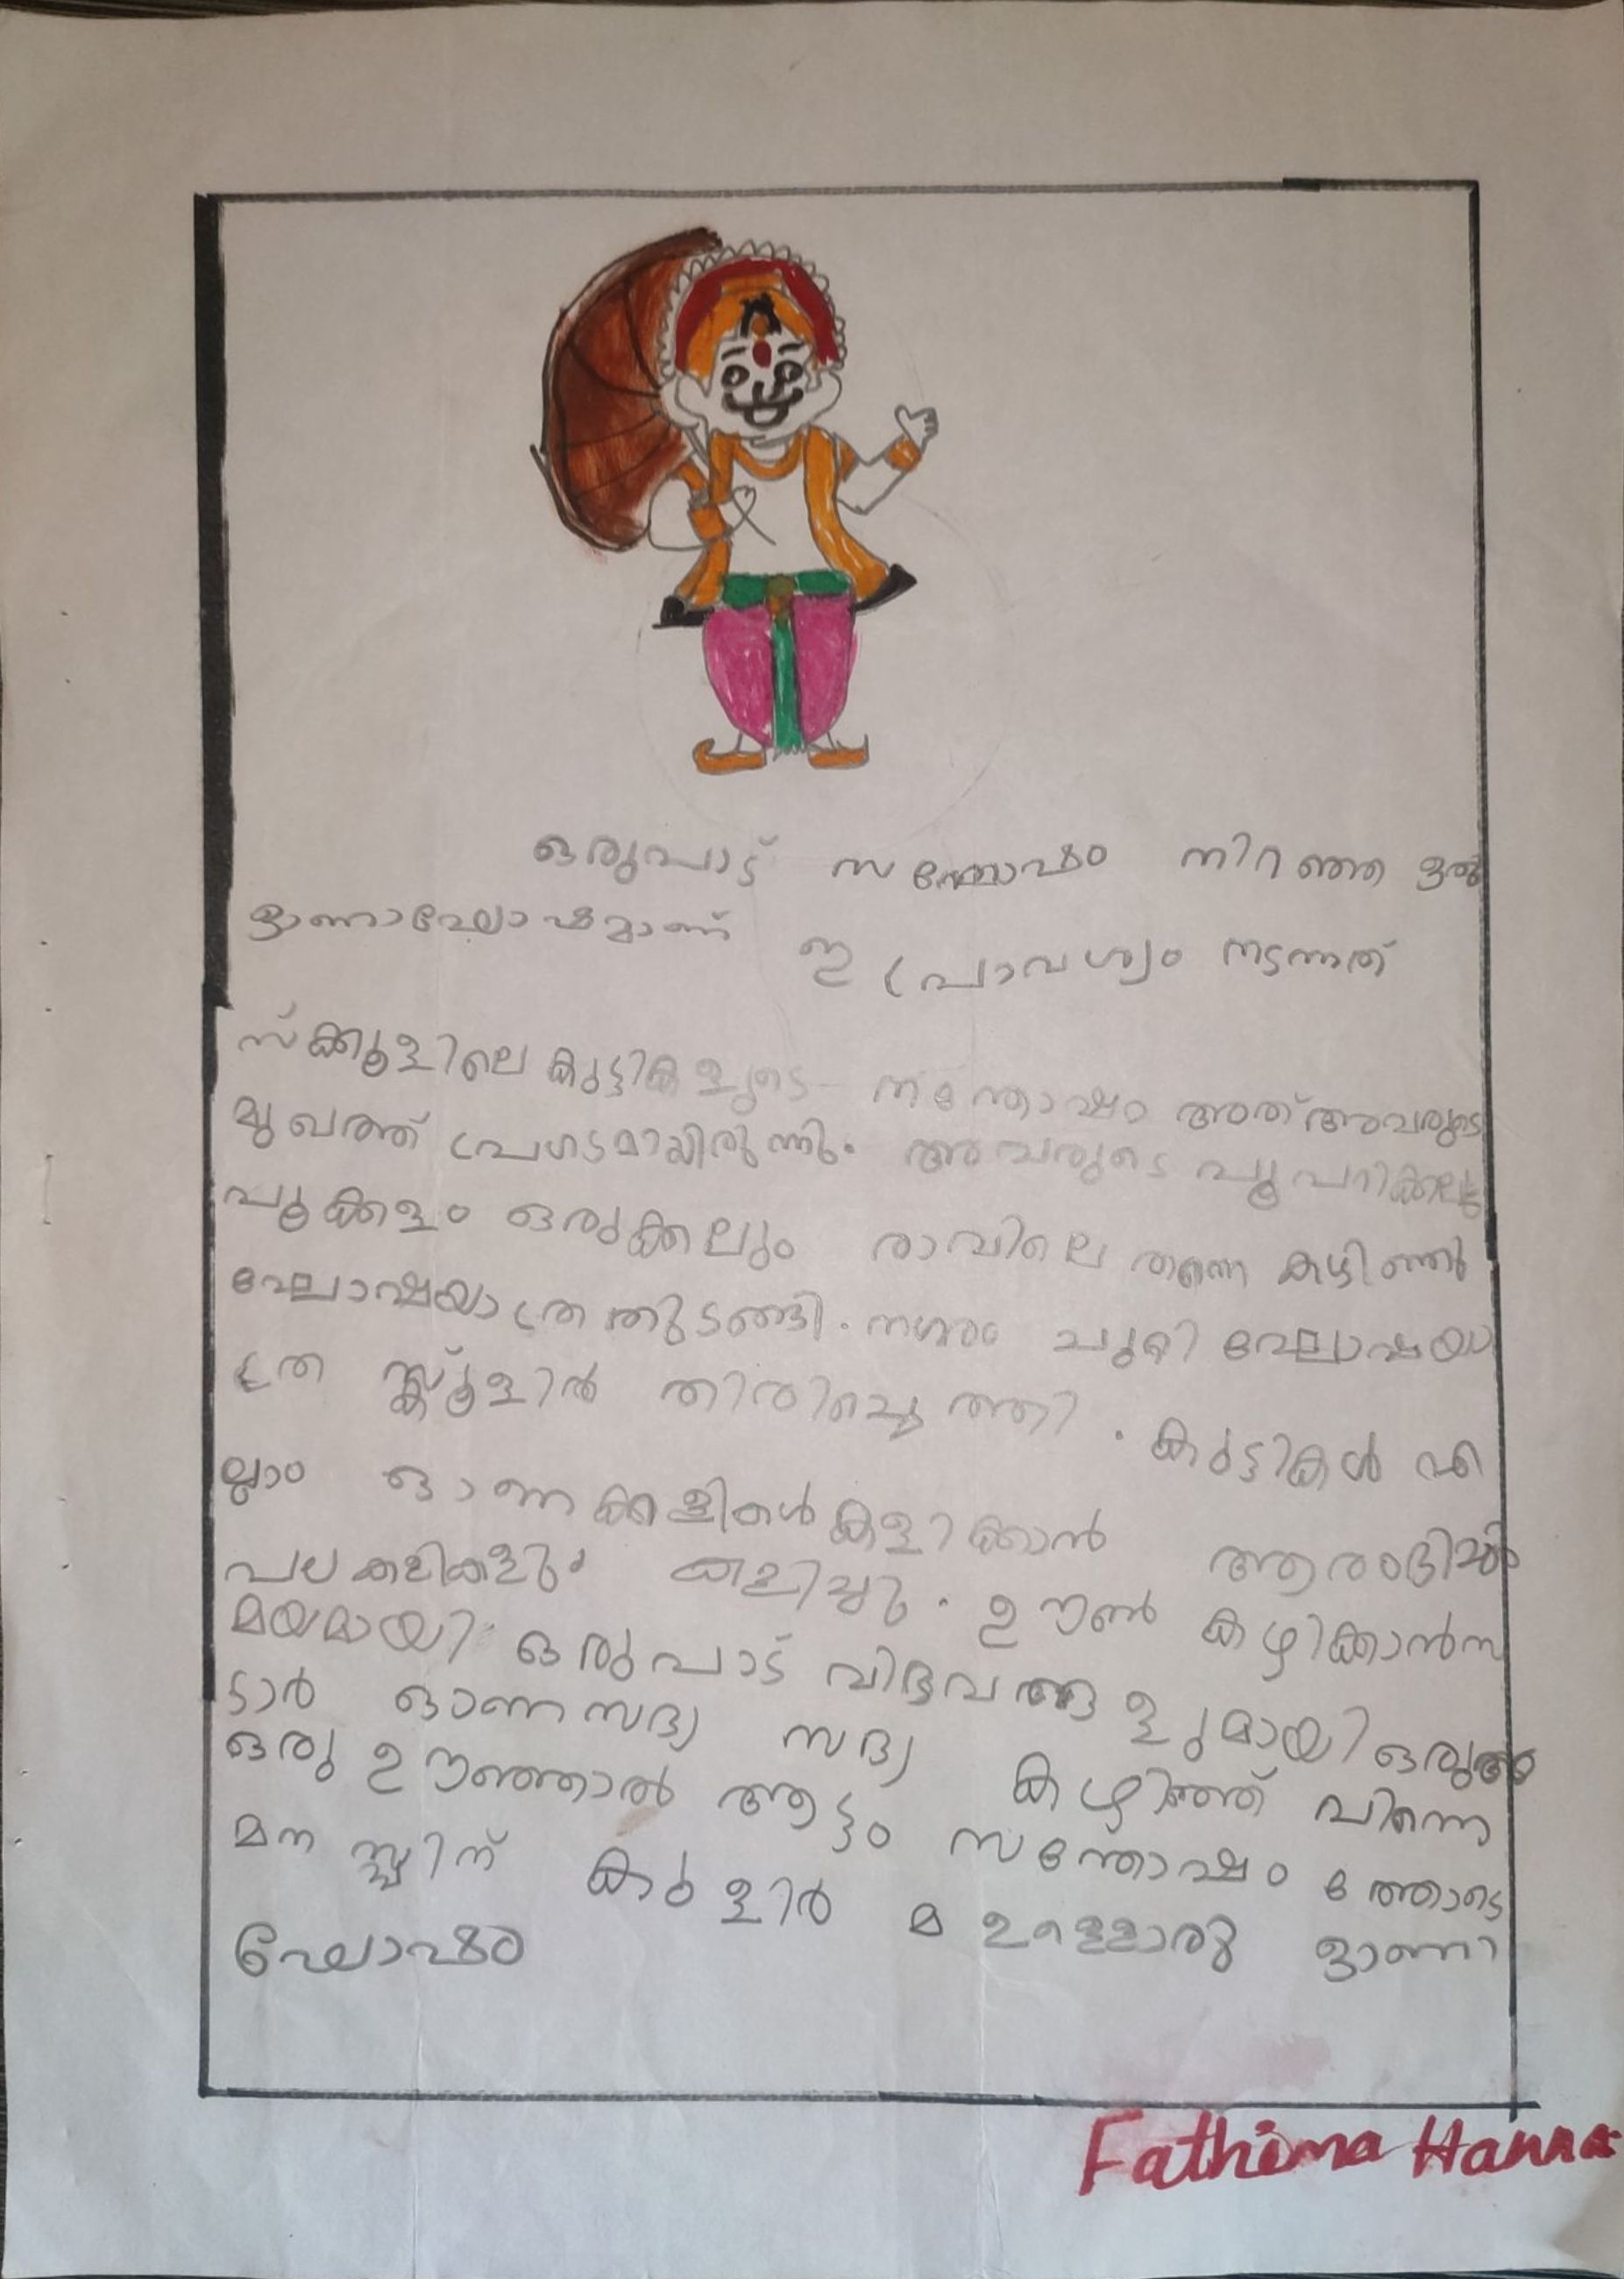 ഒരുപാട് സന്തോഷം നിറഞ്ഞ ഒരു
ഓണാഘോഷമാണ് ഈ പ്രാവശ്യം നടന്നത്
സ്ക്കൂളിലെ കുട്ടികളുടെ സന്തോഷം അത് അവരുടെ
മുഖത്ത് പ്രഗടമായിരുന്നു. അവരുടെ പൂപറിക്കലും
പൂക്കളം ഒരുക്കലും രാവിലെ തന്നെ കഴിഞ്ഞു
ഘോഷയാത്ര തുടങ്ങി. നഗരം ചുറ്റി ഘോഷയാ
ത്ര സ്കൂളിൽ തിരിച്ചെത്തി. കുട്ടികൾ എ
ല്ലാം ഓണക്കളികൾ കളിക്കാൻ ആരംഭിച്ചു
പല കളികളും കളിച്ചു. ഊൺ കഴിക്കാൻ സ
മയമായി ഒരുപാട് വിഭവങ്ങളുമായി ഒരു
ടാർ ഓണസദ്യ സദ്യ കഴിഞ്ഞ് പിന്നെ
ഒരു ഊഞ്ഞാൽ ആട്ടം സന്തോഷം ത്തോടെ
മനസ്സിന് കുളിർ മ ഉള്ളൊരു ഓണാ
ഘോഷം
Fathima Hanna